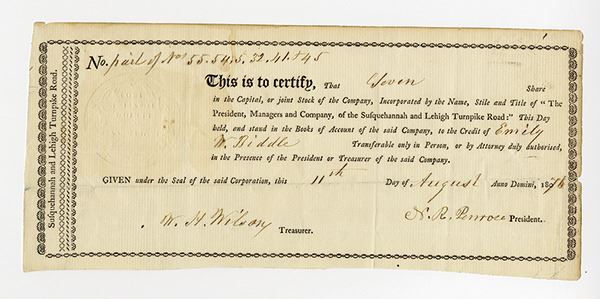 No. part of Nos 55. 54. 5. 32. 41. & 45
This is to certify, That Seven Share
in the Capital, or joint Stock of the Company, Incorporated by the Name, Stile and Title of "The
President, Managers and Company, of the Susquehannah and Lehigh Turnpike Road:" This Day
held, and stand in the Books of Account of the said Company, to the Credit of Emily
W. Biddle Transferable only in Person, or by Attorney duly authorised,
in the Presence of the President or Treasurer of the said Company.
GIVEN under the Seal of the said Corporation, this 11th Day of August Anno Domini, 1876
N. R. Penrose President.
W. H. Wilson Treasurer.
Susquehannah and Lehigh Turnpike Road.